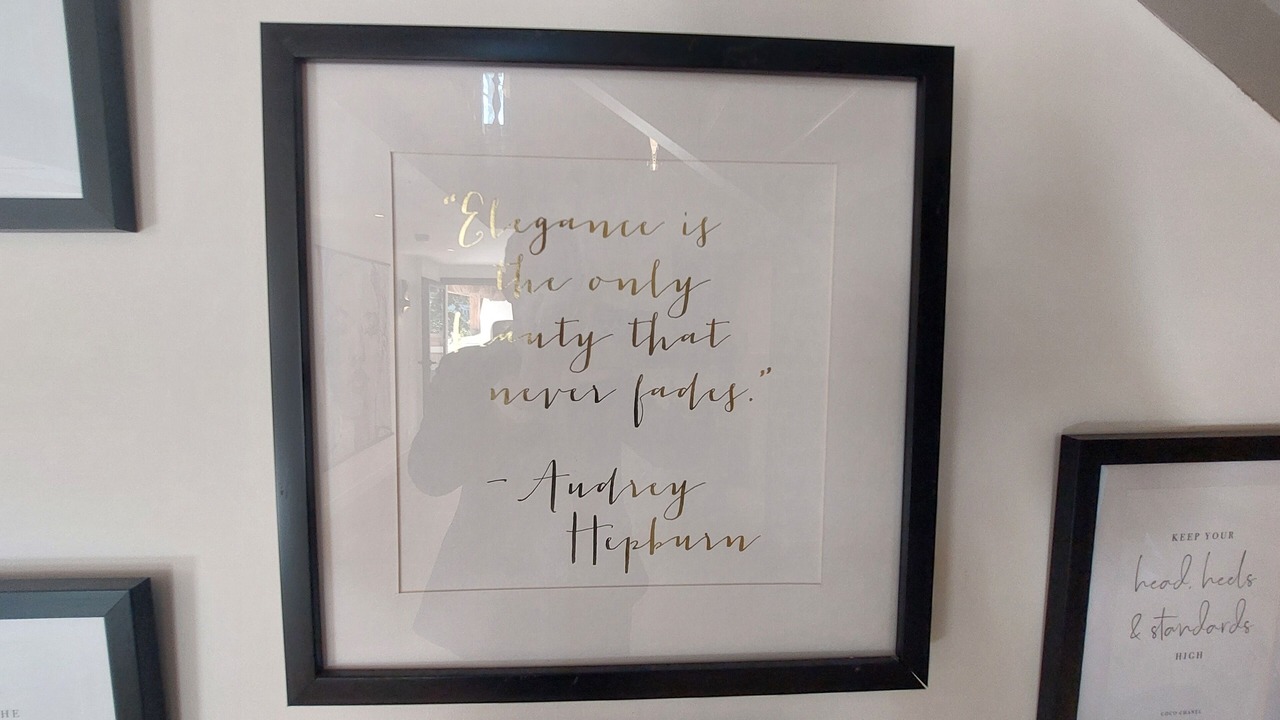 “Elegance is
the only
beauty that
never fades.”
- Audrey
Hepburn
KEEP YOUR
head, heels
& standards
HIGH
COCO CHANEL
HE